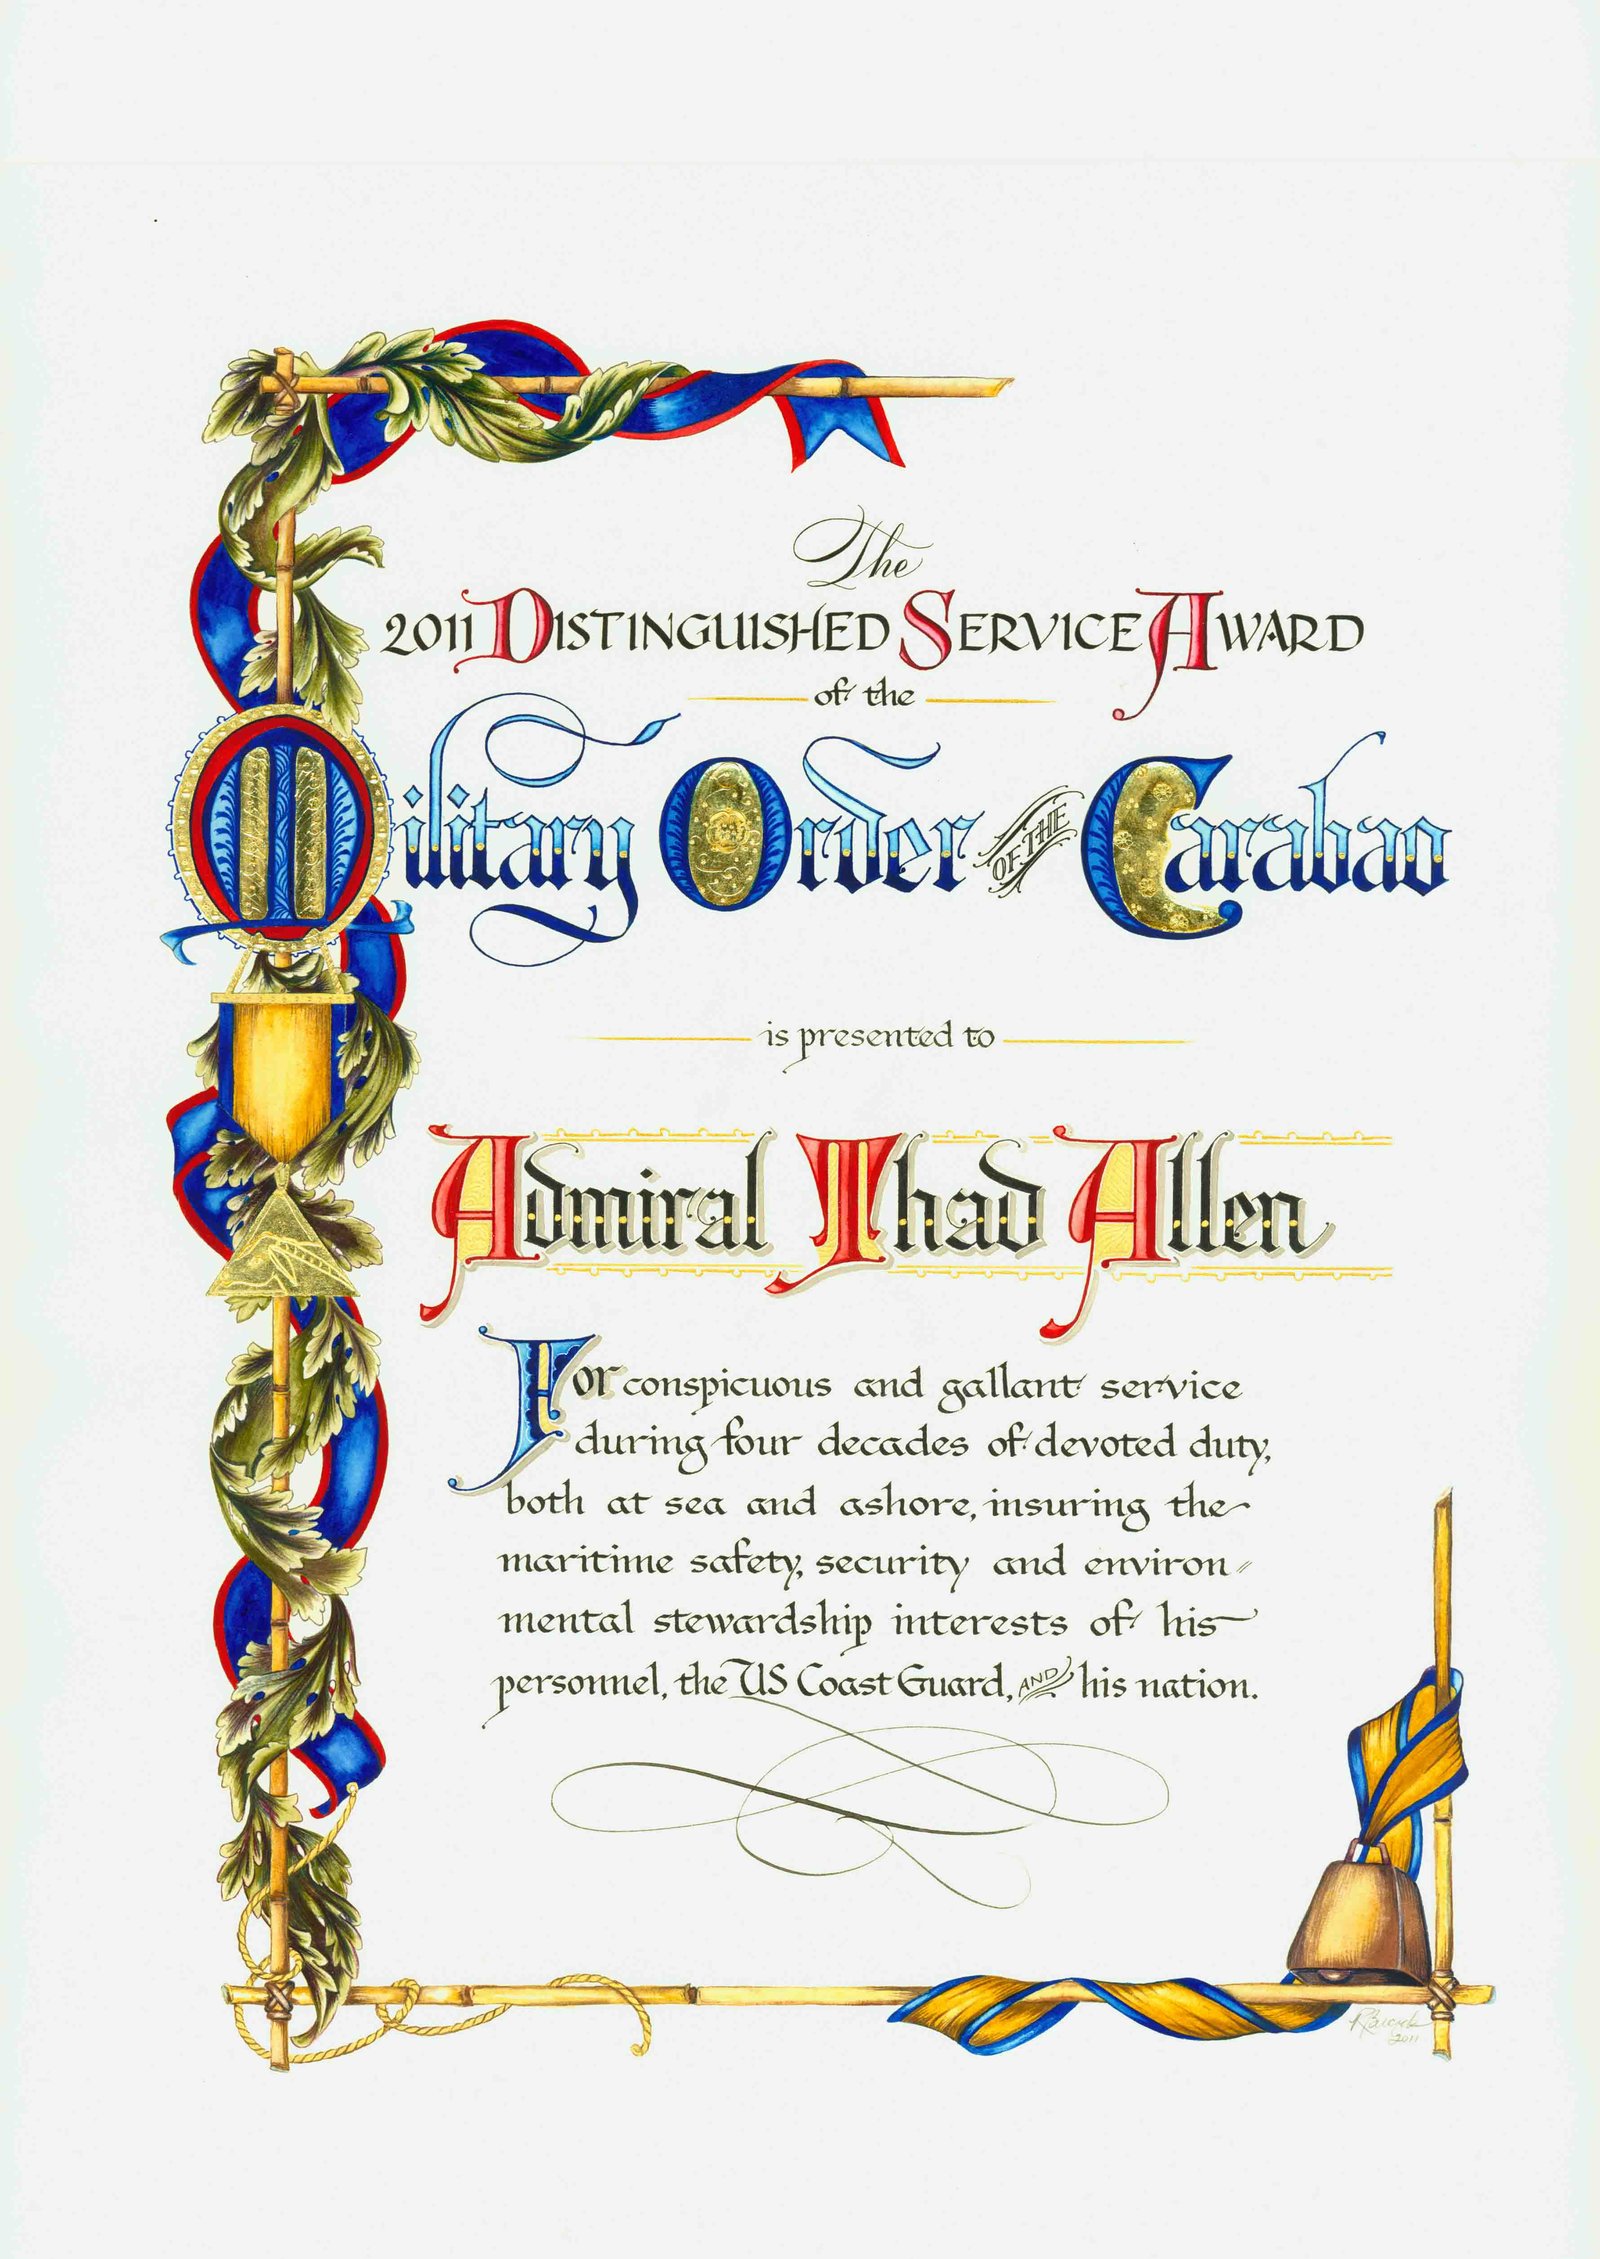 The
2011 DISTINGUISHED SERVICE AWARD
of the
Military Order OF THE Carabao
is presented to
Admiral Thad Allen
For conspicuous and gallant service
during four decades of devoted duty,
both at sea and ashore, insuring the
maritime safety, security and environ-
mental stewardship interests of his
personnel, the US Coast Guard, AND his nation.
2011